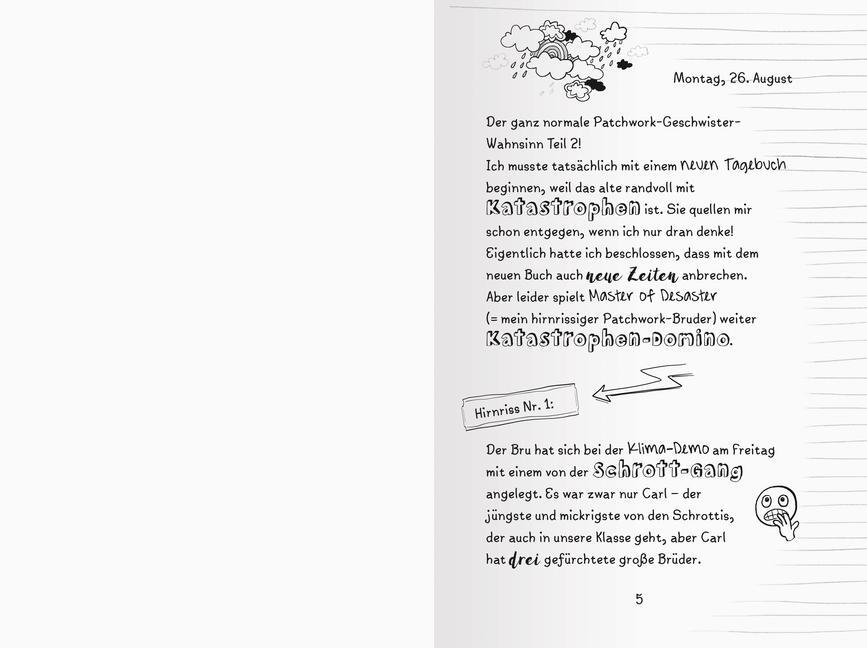 Montag, 26. August
Der ganz normale Patchwork-Geschwister-
Wahnsinn Teil 2!
Ich musste tatsächlich mit einem neuen Tagebuch
beginnen, weil das alte randvoll mit
Katastrophen ist. Sie quellen mir
schon entgegen, wenn ich nur dran denke!
Eigentlich hatte ich beschlossen, dass mit dem
neuen Buch auch neue Zeiten anbrechen.
Aber leider spielt Master of Desaster
(= mein hirnrissiger Patchwork-Bruder) weiter
Katastrophen-Domino.
Hirnriss Nr. 1:
Der Bru hat sich bei der Klima-Demo am Freitag
mit einem von der Schrott-Gang
angelegt. Es war zwar nur Carl – der
jüngste und mickrigste von den Schrottis,
der auch in unsere Klasse geht, aber Carl
hat drei gefürchtete große Brüder.
5